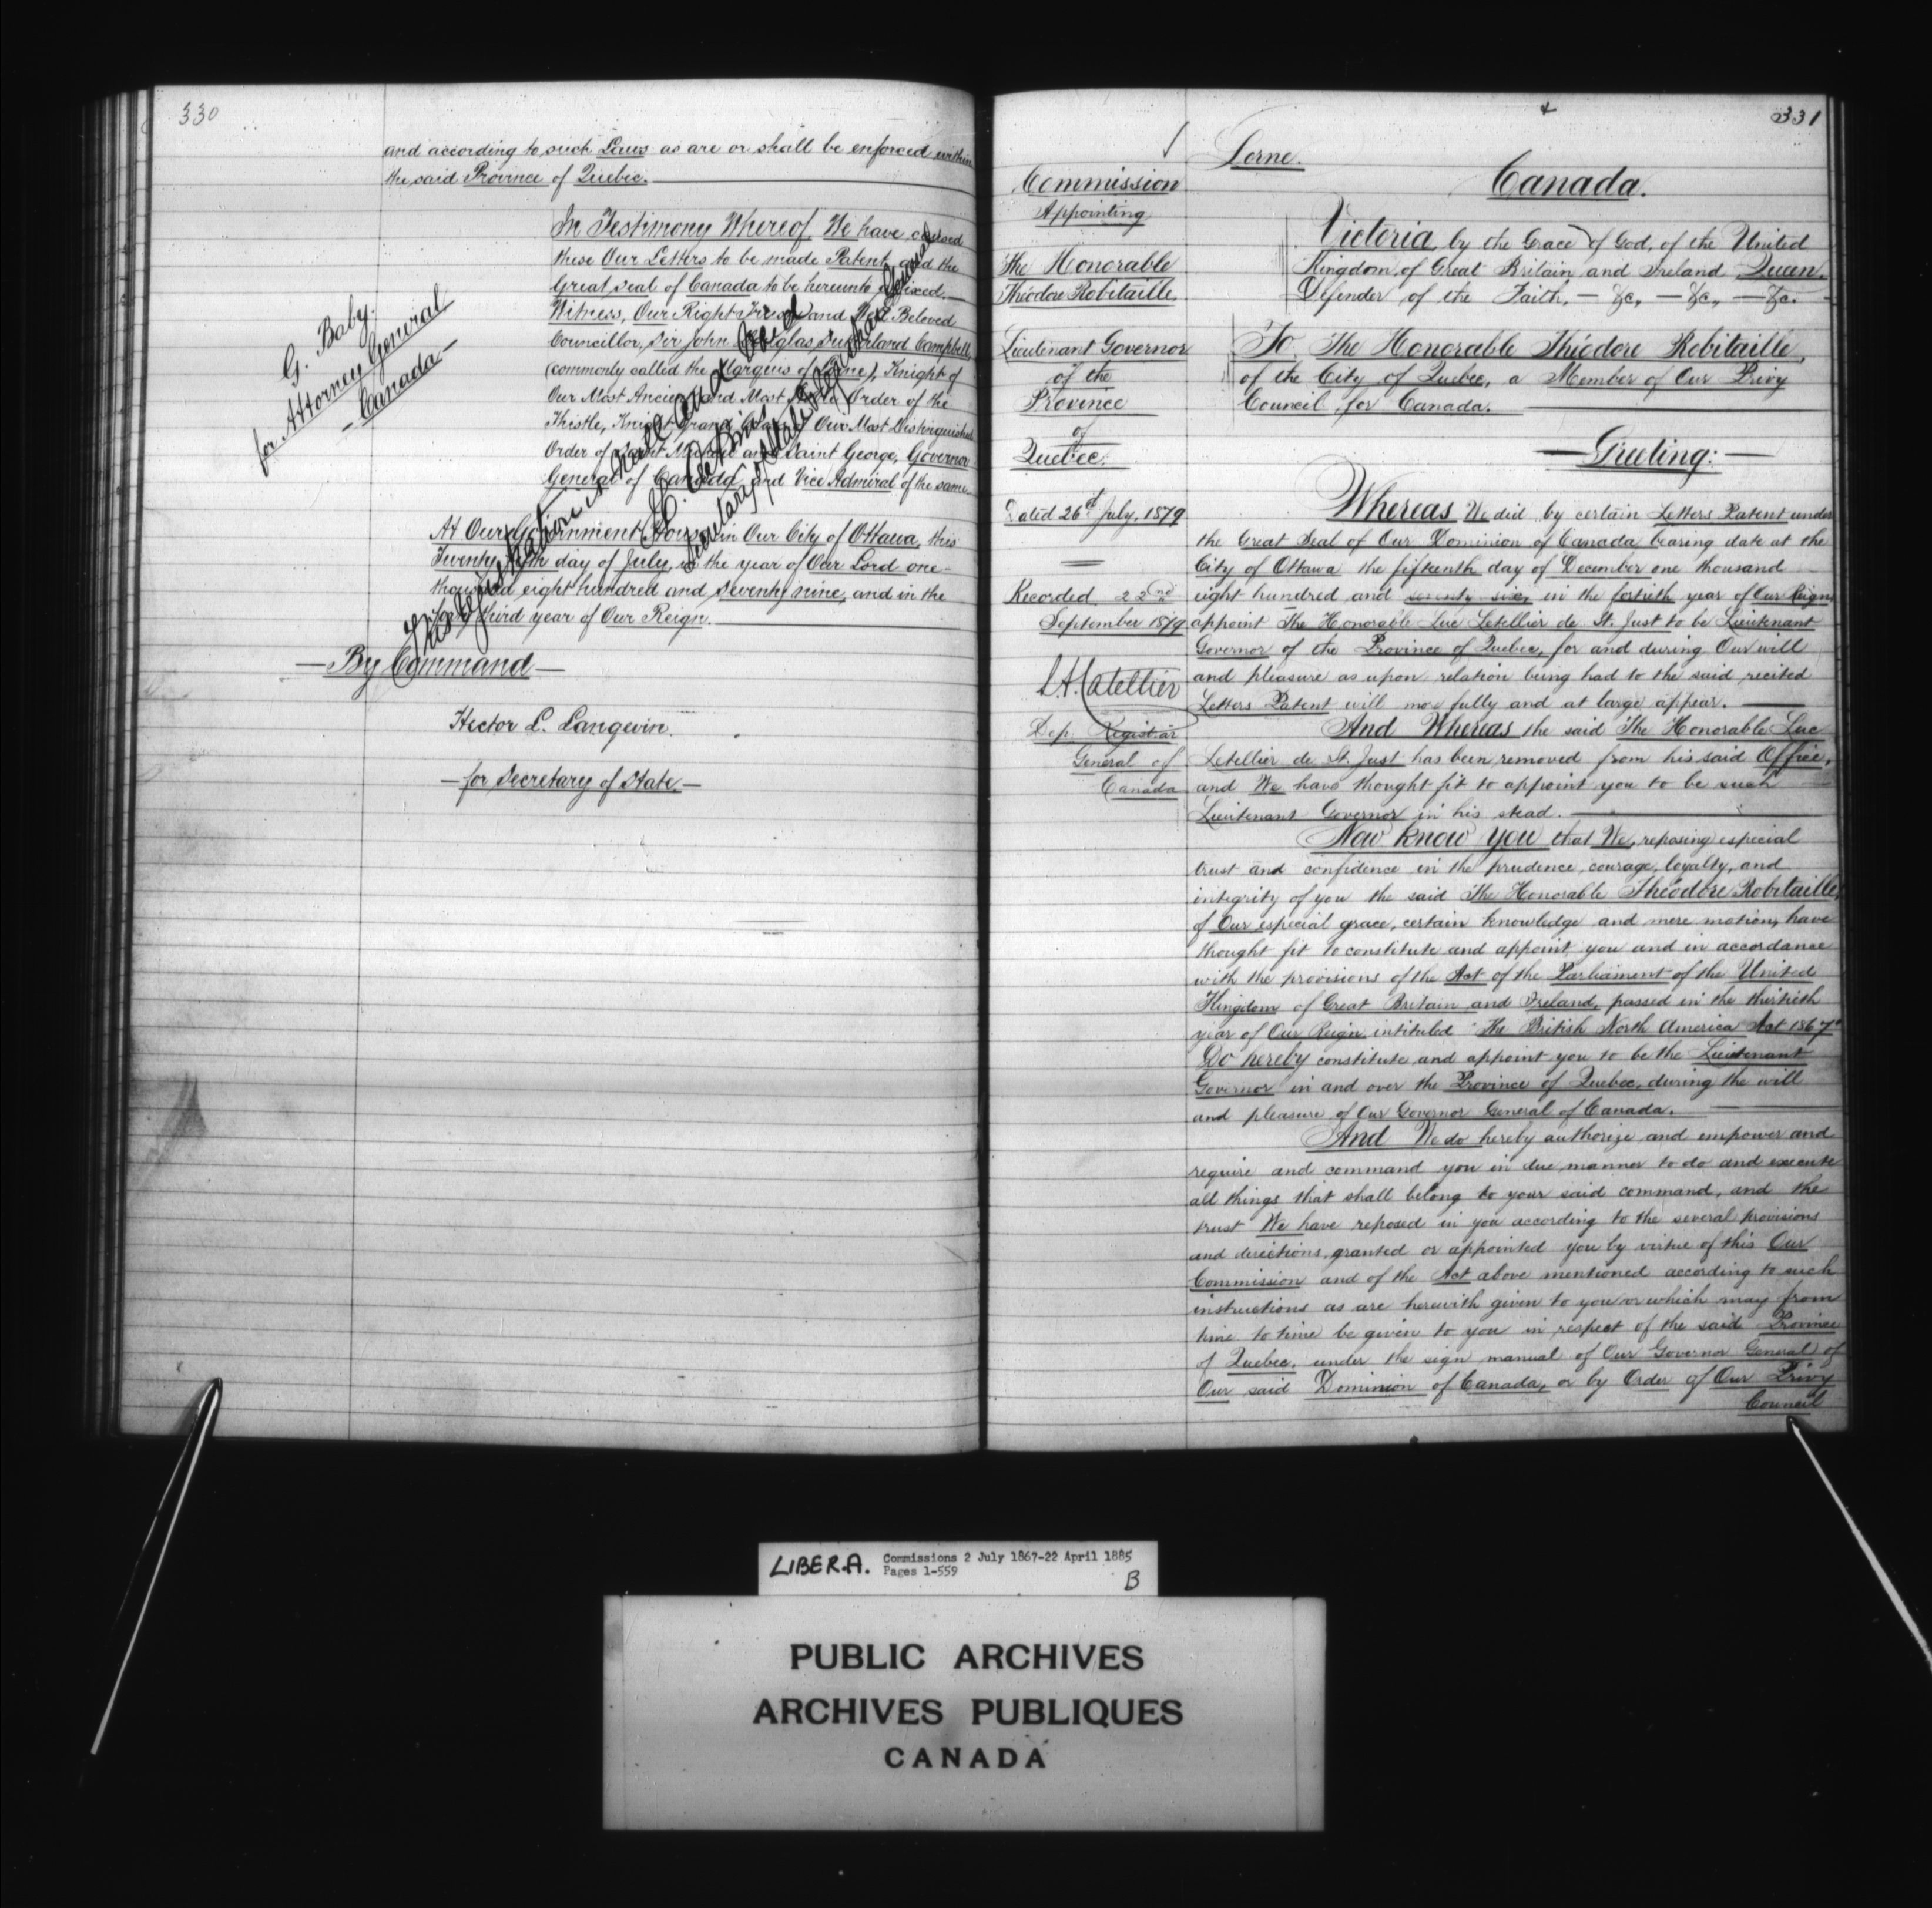 330
and according to such Laws as are or shall be enforced within
the said Province of Quebec.
In Testimony Whereof, We have caused
these Our Letters to be made Patent, and the
Great Seal of Canada to be hereunto affixed.
Witness, Our Right Trusty and Well Beloved
Councillor, Sir John Douglas Sutherland Campbell,
(commonly called the Marquis of Lorne), Knight of
Our Most Ancient and Most Noble Order of the
Thistle, Knight Grand Cross of Our Most Distinguished
Order of Saint Michael and Saint George, Governor
General of Canada and Vice Admiral of the same.
At Our Government House, in Our City of Ottawa, this
Twenty day of July, in the year of Our Lord one
thousand eight hundred and Seventy nine, and in the
Forty third year of Our Reign.
G. Baby.
for Attorney General
Canada
This Registration is null and void
Secretary of State & Registrar General
By Command
Hector L. Langevin.
for Secretary of State
331
Lorne.
Canada.
Commission
Appointing
The Honorable
Théodore Robitaille
Lieutenant Governor
of the
Province
of
Quebec.
Dated 26th July, 1879
Recorded 22nd
September 1879
L.A. Catellier
Dep. Registrar
General of
Canada
Victoria, by the Grace of God, of the United
Kingdom, of Great Britain and Ireland Queen,
Defender of the Faith, — &c, — &c, — &c.
To The Honorable Théodore Robitaille,
of the City of Quebec, a Member of Our Privy
Council for Canada.
Greeting:
Whereas We did by certain Letters Patent under
the Great Seal of Our Dominion of Canada bearing date at the
City of Ottawa the fifteenth day of December one thousand
eight hundred and seventy six, in the fortieth year of Our Reign
appoint The Honorable Luc Letellier de St. Just to be Lieutenant
Governor of the Province of Quebec, for and during Our will
and pleasure as upon relation being had to the said recited
Letters Patent will more fully and at large appear.
And Whereas the said The Honorable Luc
Letellier de St. Just has been removed from his said Office,
and We have thought fit to appoint you to be such
Lieutenant Governor in his stead.
Now Know You that We, reposing especial
trust and confidence in the prudence, courage, loyalty, and
integrity of you the said The Honorable Théodore Robitaille,
of Our especial grace, certain knowledge and mere motion, have
thought fit to constitute and appoint you and in accordance
with the provisions of the Act of the Parliament of the United
Kingdom of Great Britain and Ireland, passed in the thirtieth
year of Our Reign intituled "The British North America Act 1867"
Do hereby constitute and appoint you to be the Lieutenant
Governor in and over the Province of Quebec, during the will
and pleasure of Our Governor General of Canada.
And We do hereby authorize and empower and
require and command you in due manner to do and execute
all things that shall belong to your said command, and the
trust We have reposed in you according to the several provisions
and directions, granted or appointed you by virtue of this Our
Commission and of the Act above mentioned according to such
instructions as are herewith given to you or which may from
time to time be given to you in respect of the said Province
of Quebec, under the sign manual of Our Governor General of
Our said Dominion of Canada, or by Order of Our Privy
Council
LIBER.A. Commissions 2 July 1867-22 April 1885
Pages 1-559
B
PUBLIC ARCHIVES
ARCHIVES PUBLIQUES
CANADA